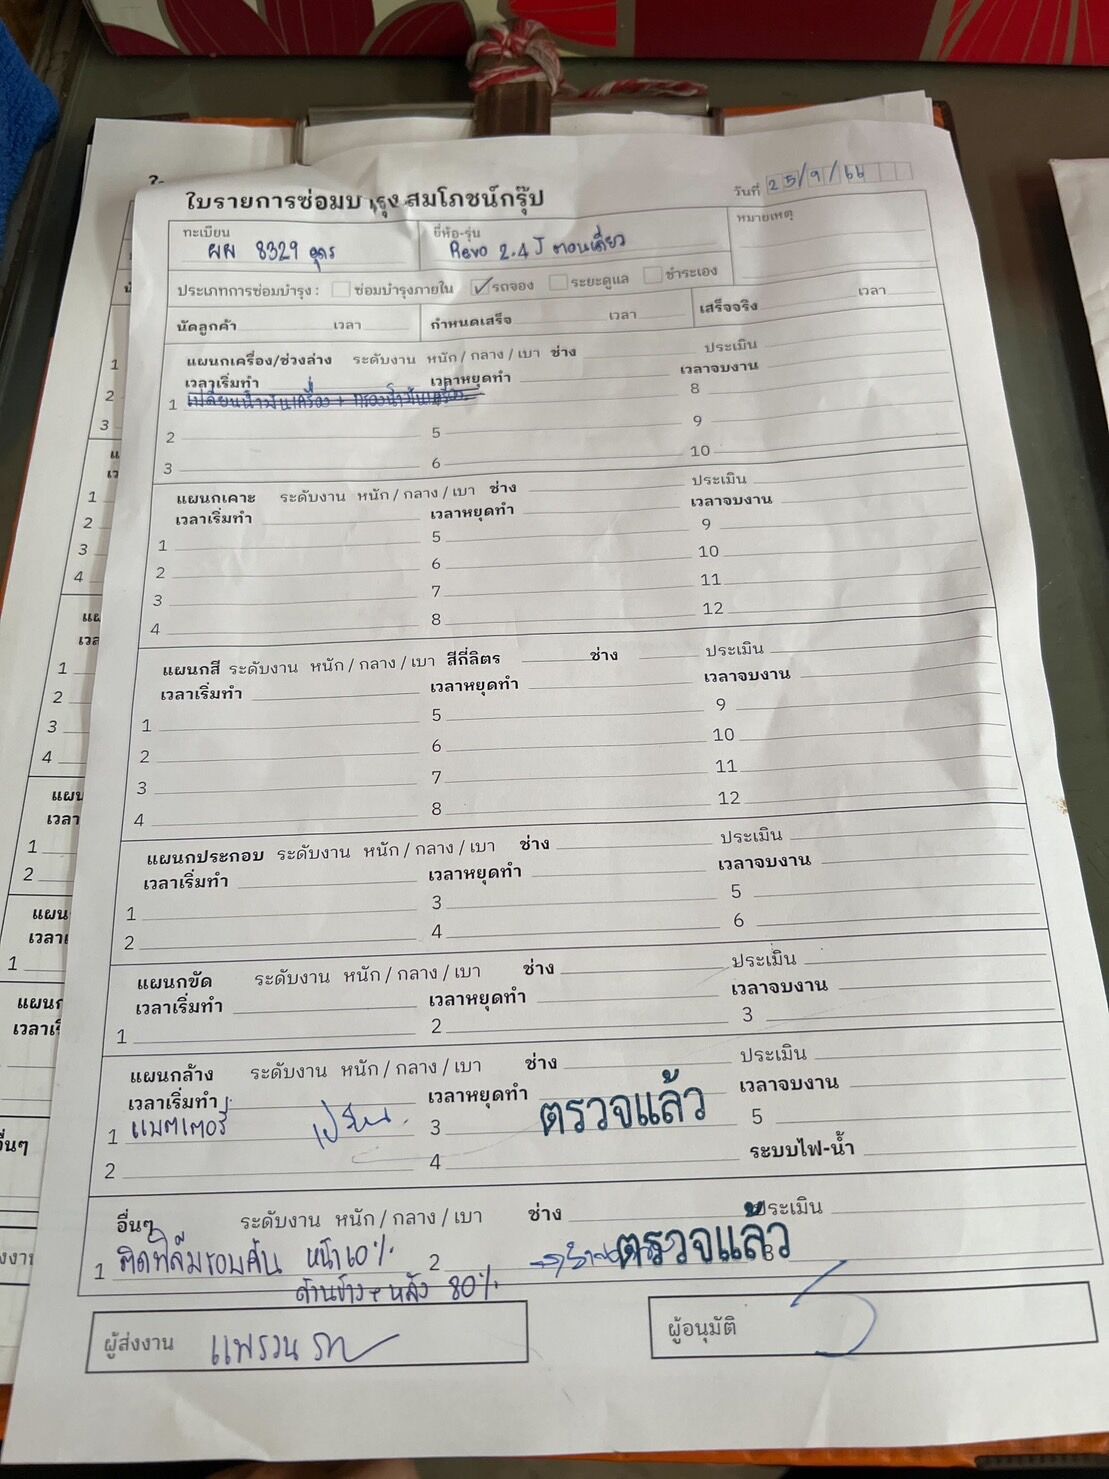 ใบรายการซ่อมบำรุง สมโภชน์กรุ๊ป
วันที่ 25/9/66
ทะเบียน ผผ 8329 อุดร
ยี่ห้อ-รุ่น Revo 2.4 J ตอนเดียว
หมายเหตุ
ประเภทการซ่อมบำรุง : ซ่อมบำรุงภายใน ✓รถจอง ระยะดูแล ชำระเอง
นัดลูกค้า เวลา กำหนดเสร็จ เวลา เสร็จจริง เวลา
แผนกเครื่อง/ช่วงล่าง ระดับงาน หนัก / กลาง / เบา ช่าง ประเมิน
เวลาเริ่มทำ เวลาหยุดทำ เวลาจบงาน
1 เปลี่ยนน้ำมันเครื่อง + กรองน้ำมันเครื่อง 8
2 5 9
3 6 10
แผนกเคาะ ระดับงาน หนัก / กลาง / เบา ช่าง ประเมิน
เวลาเริ่มทำ เวลาหยุดทำ เวลาจบงาน
1 5 9
2 6 10
3 7 11
4 8 12
แผนกสี ระดับงาน หนัก / กลาง / เบา สีกี่ลิตร ช่าง ประเมิน
เวลาเริ่มทำ เวลาหยุดทำ เวลาจบงาน
1 5 9
2 6 10
3 7 11
4 8 12
แผนกประกอบ ระดับงาน หนัก / กลาง / เบา ช่าง ประเมิน
เวลาเริ่มทำ เวลาหยุดทำ เวลาจบงาน
1 3 5
2 4 6
แผนกขัด ระดับงาน หนัก / กลาง / เบา ช่าง ประเมิน
เวลาเริ่มทำ เวลาหยุดทำ เวลาจบงาน
1 2 3
แผนกล้าง ระดับงาน หนัก / กลาง / เบา ช่าง ประเมิน
เวลาเริ่มทำ เวลาหยุดทำ เวลาจบงาน
1 แบตเตอรี่ 3 ตรวจแล้ว 5
2 4 ระบบไฟ-น้ำ
อื่นๆ ระดับงาน หนัก / กลาง / เบา ช่าง ประเมิน
1 ติดฟิล์มรอบคัน หน้า 60% 2 ตรวจแล้ว 3
ด้านข้าง + หลัง 80%
ผู้ส่งงาน
ผู้อนุมัติ